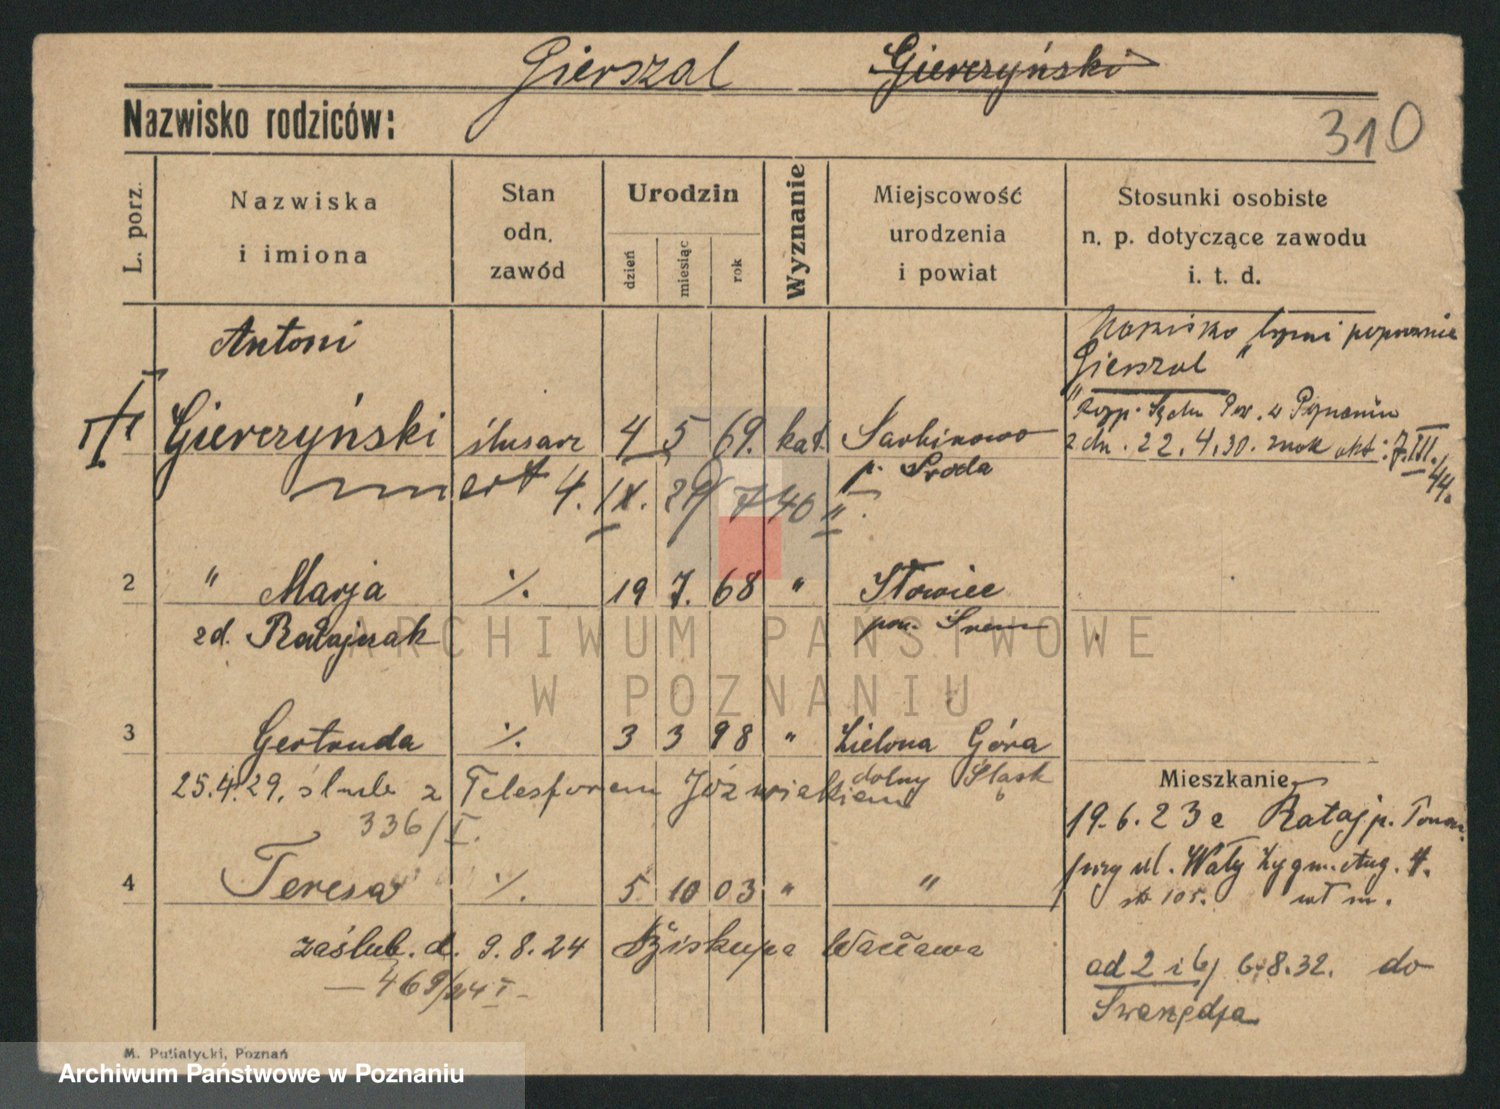 Gierszal Gierczyński
Nazwisko rodziców:
310
L. porz.
Nazwiska i imiona
Stan odn. zawód
Urodzin
dzień
miesiąc
rok
Wyznanie
Miejscowość urodzenia i powiat
Stosunki osobiste n. p. dotyczące zawodu i. t. d.
Antoni
Gierczyński ślusarz 4 5 69. kat. Sarbinowo
p. Środa
4. IX. 29 740 II.
Nazwisko brzmi poprawnie
"Gierszal"
Rozp. Sądu Pow. w Poznaniu
z dn. 22.4.30. znak akt: 7.III.
44.
2 " Marja ./. 19 7. 68 " Słowiec
zd. Ratajczak pow. Śrem
3 Gertruda ./. 3 3 98 " Zielona Góra
dolny Śląsk
25.4.29. ślub z Telesforem Jóźwiakiem
336/I.
4 Teresa ./. 5 10 03 " "
zaślub. d. 9.8.24 Biskupa Wacława
— 469/24 I —
Mieszkanie
19.6.23 z Rataj p.
przy ul. Wały Zygm. Aug. 4.
105.
ad 2 i 6/ 6.8.32. do
Swarzędza
M. Putiatycki, Poznań
ARCHIWUM PAŃSTWOWE
W POZNANIU
Archiwum Państwowe w Poznaniu